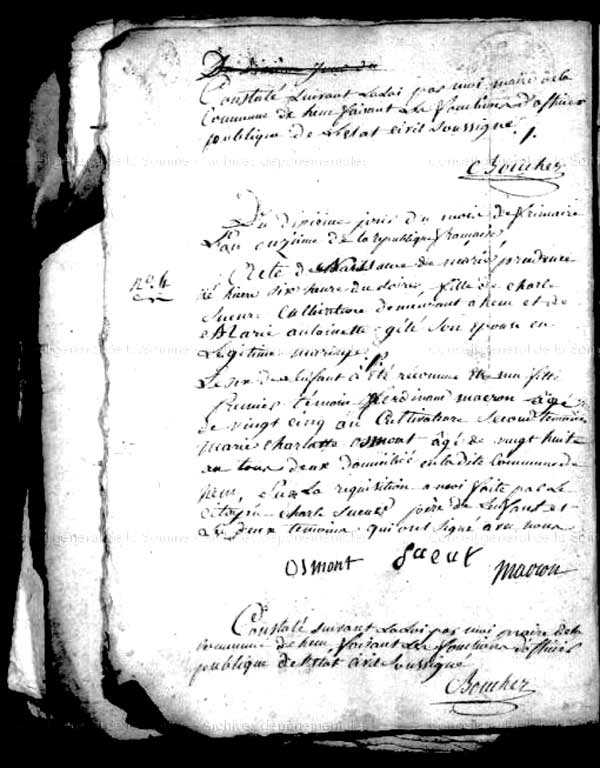 Du dixième jour du
Constaté suivant La Loi par moi maire de la
Commune de hem faisant Les fonctions d'officier
publique de L'Etat civil Soussigné ./.
Boucher
Du dixieme jour du mois de frimaire
L'an onzième de la republique française
N.º 4
Acte de Naissance de marie prudence
né hiere six heure du soire, fille de charle
Sueur Cultivateur demeurant a hem et de
Marie antoinette gélé Son epouse en
Legitime mariage
Le sex de L'enfant à été reconnue être une fille
Premier témoin ferdinand macron âgé
de vingt cinq an Cultivateur Second temoin
marie Charlotte osmont agé de vingt huite
an tous deux domicilié en la dite Commune de
hem, Sur La requisition a nous faite par Le
Citoyen Charle Sueur père de L'enfant et
Les deux temoins qui ont Signé avec nous
osmont Sueur macron
Constaté suivant La Loi par moi maire de la
Commune de hem, faisant Les fonctions d'officier
publique de L'Etat civil Soussigné
Boucher